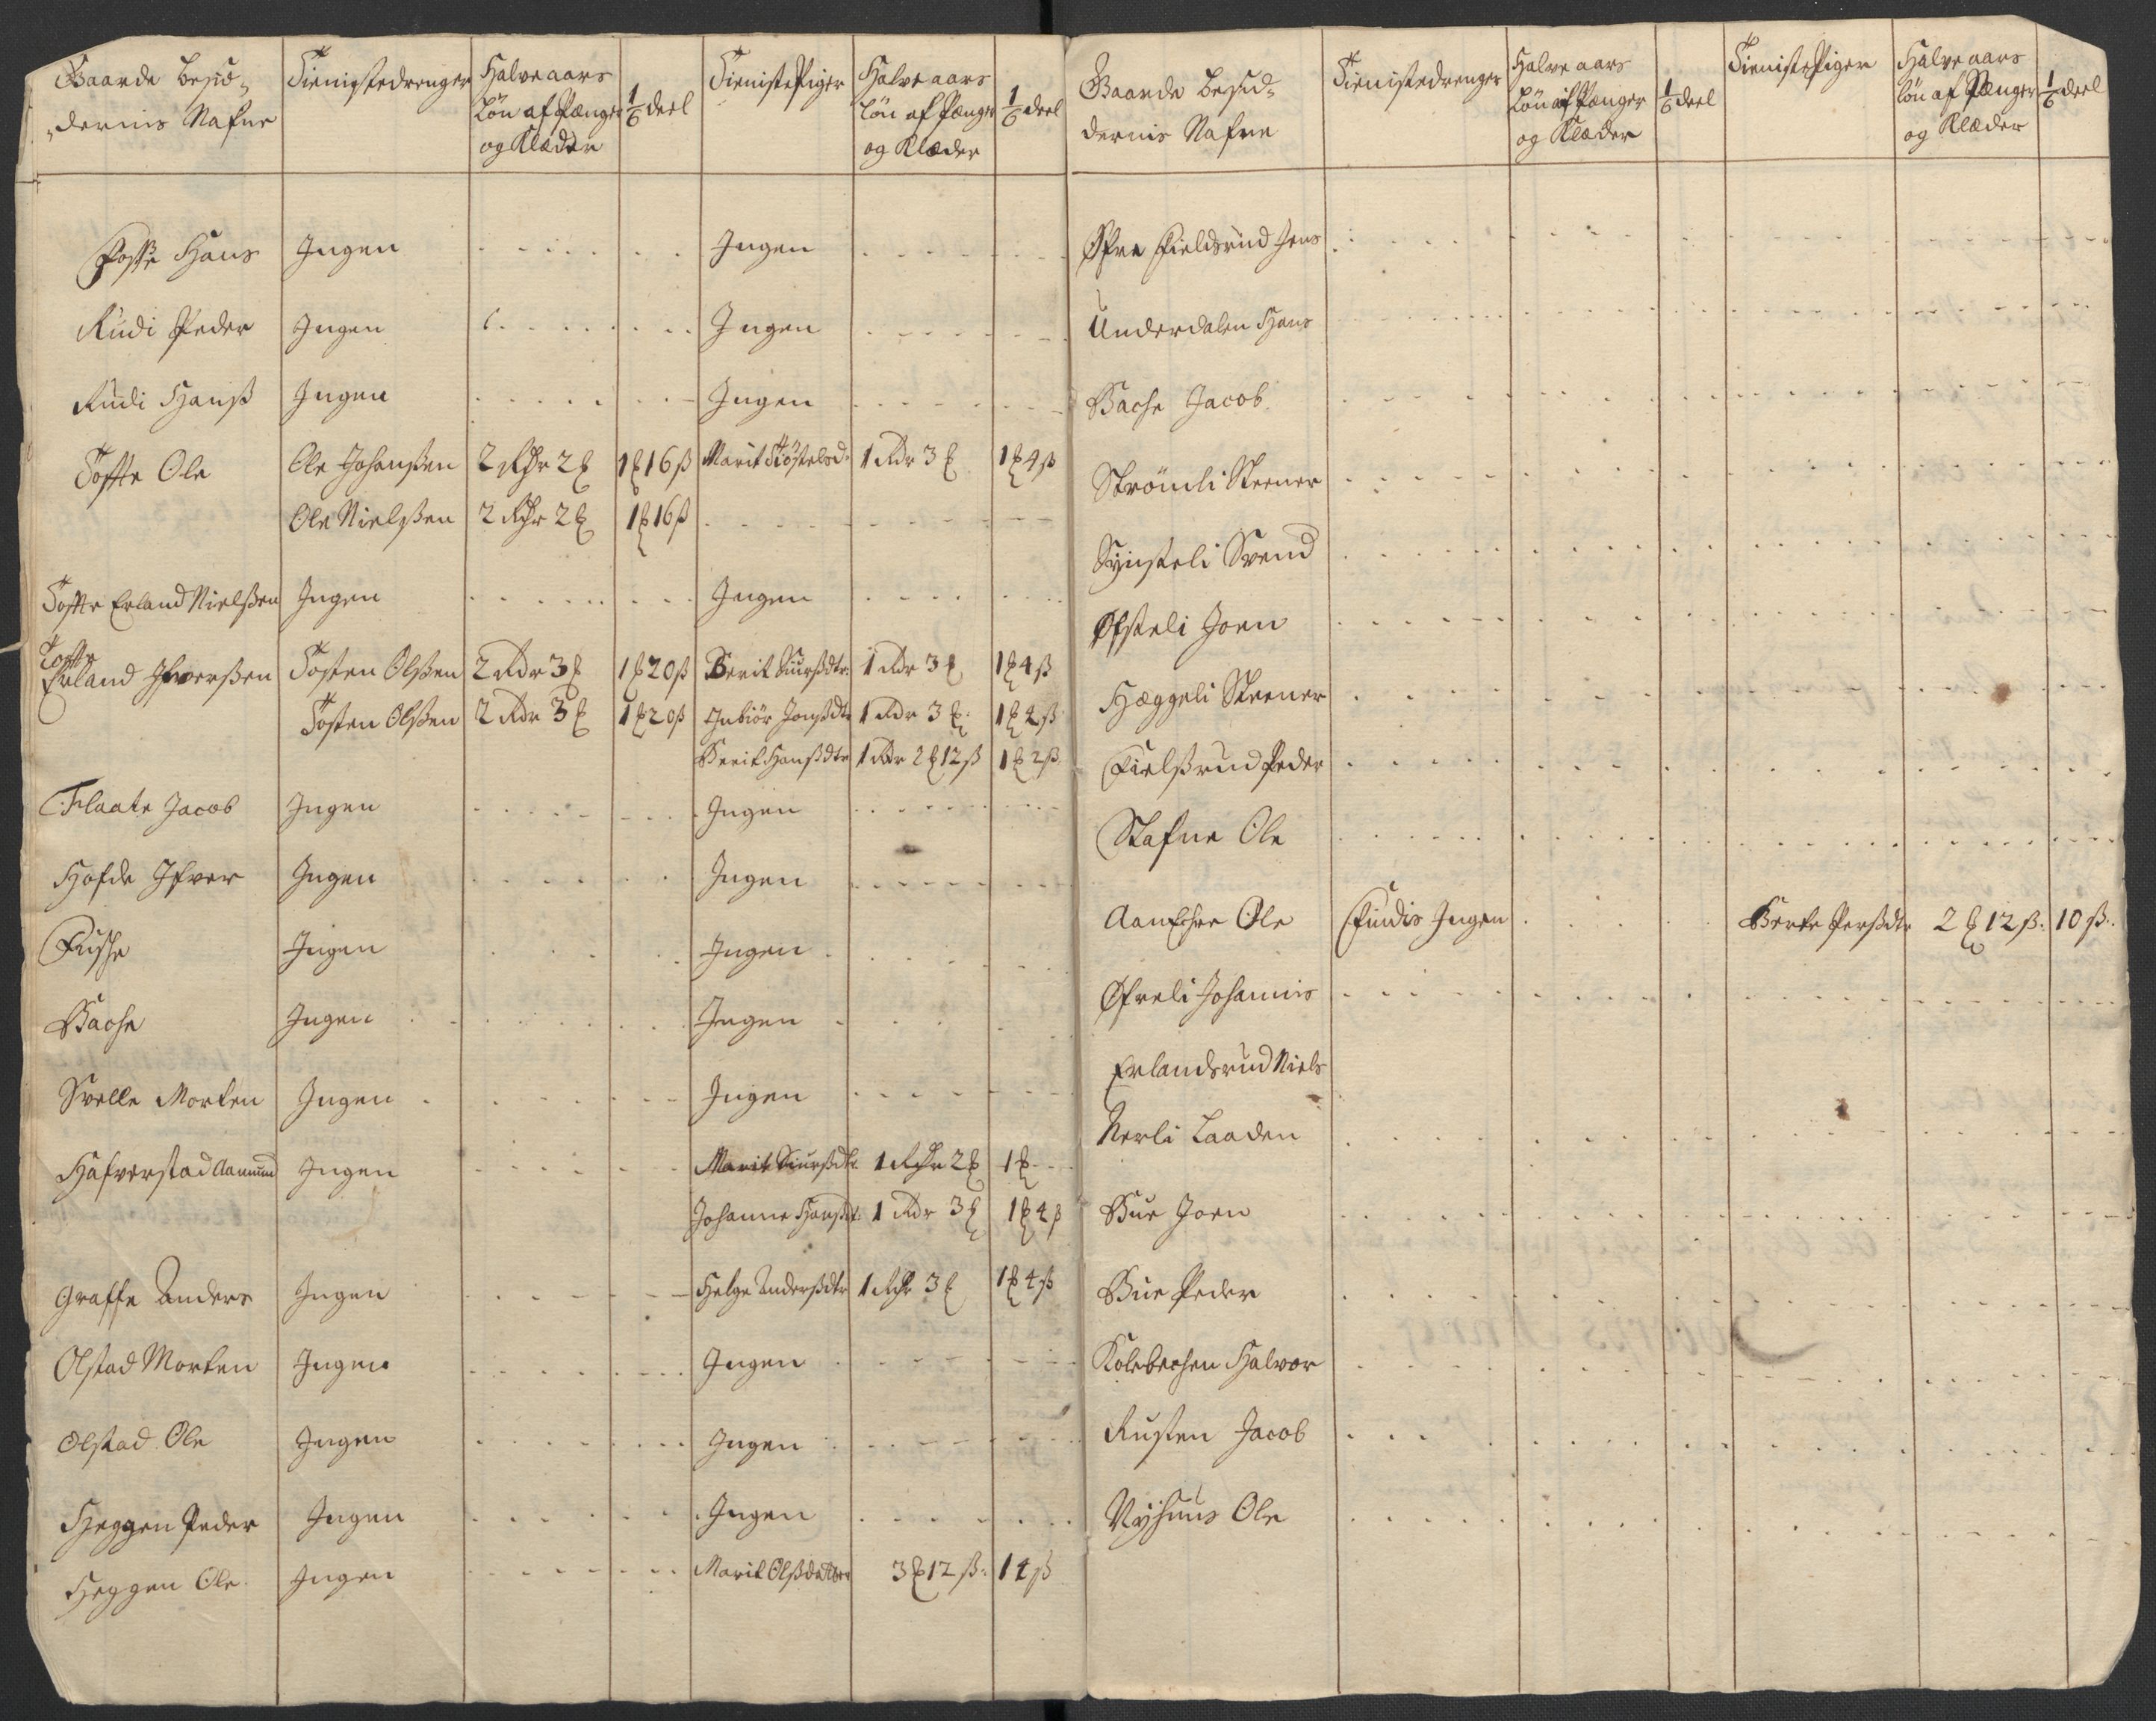 Gaarde besid-
dernis Nafne
Tienistedrenger
Halve aars
Løn af Pænger
og Klæder
1/6 deel
Tieniste Piger
Halve aars
Løn af Pænger
og Klæder
1/6 deel
Fosse Hans Ingen Ingen
Rudi Peder Ingen Ingen
Rudi Hanss Ingen Ingen
Tofte Ole Ole Johanssen 2 Rdr 2 ₰ 1 ₰ 16 ß Marit 1 Rdr 3 ₰ 1 ₰ 4 ß
Ole Nielssen 2 Rdr 2 ₰ 1 ₰ 16 ß
Tofte Erland Nielssen Ingen Ingen
Tofte
Erland Iverssen Tosten Olssen 2 Rdr 3 ₰ 1 ₰ 20 ß Berit Siurssdtr: 1 Rdr 3 ₰ 1 ₰ 4 ß
Tosten Olssen 2 Rdr 3 ₰ 1 ₰ 20 ß Inbiør Jonssdtr 1 Rdr 3 ₰: 1 ₰ 4 ß
Berit Hanssdtr 1 Rdr 2 ₰ 12 ß 1 ₰ 2 ß
Flaate Jacob Ingen Ingen
Hofde Ifver Ingen Ingen
Ingen Ingen
Bache Ingen Ingen
Svelle Morten Ingen Ingen
Hafverstad Aamund Ingen Marit Siurssdtr. 1 Rdr 2 ₰ 1 ₰
Johanne Hanssdt: 1 Rdr 3 ₰ 1 ₰ 4 ß
Graffe Anders Ingen Helge Anderssdtr 1 Rdr 3 ₰ 1 ₰ 4 ß
Olstad Morten Ingen Ingen
Olstad Ole Ingen Ingen
Heggen Peder Ingen Ingen
Heggen Ole Ingen Marit Olssdatter 3 ₰ 12 ß: 14 ß
Gaarde besid-
dernis Nafne
Tienistedrenger
Halve aars
Løn af Pænger
og Klæder
1/6 deel
Tieniste Piger
Halve aars
Løn af Pænger
og Klæder
1/6 deel
Øfre Fieldsrud Jens
Underdalen Hans
Bache Jacob
Strömli Steener
Synsteli Svend
Øfsteli Joen
Hæggeli Steener
Fielssrud Peder
Stafne Ole
Ole Findis Ingen Berte Perssdtr 2 ₰ 12 ß: 10 ß.
Øfreli Johannis
Erlandsrud Niels
Nerli Laaden
Bue Joen
Bue Peder
Kolebechen Halvor
Rusten Jacob
Nyhuus Ole